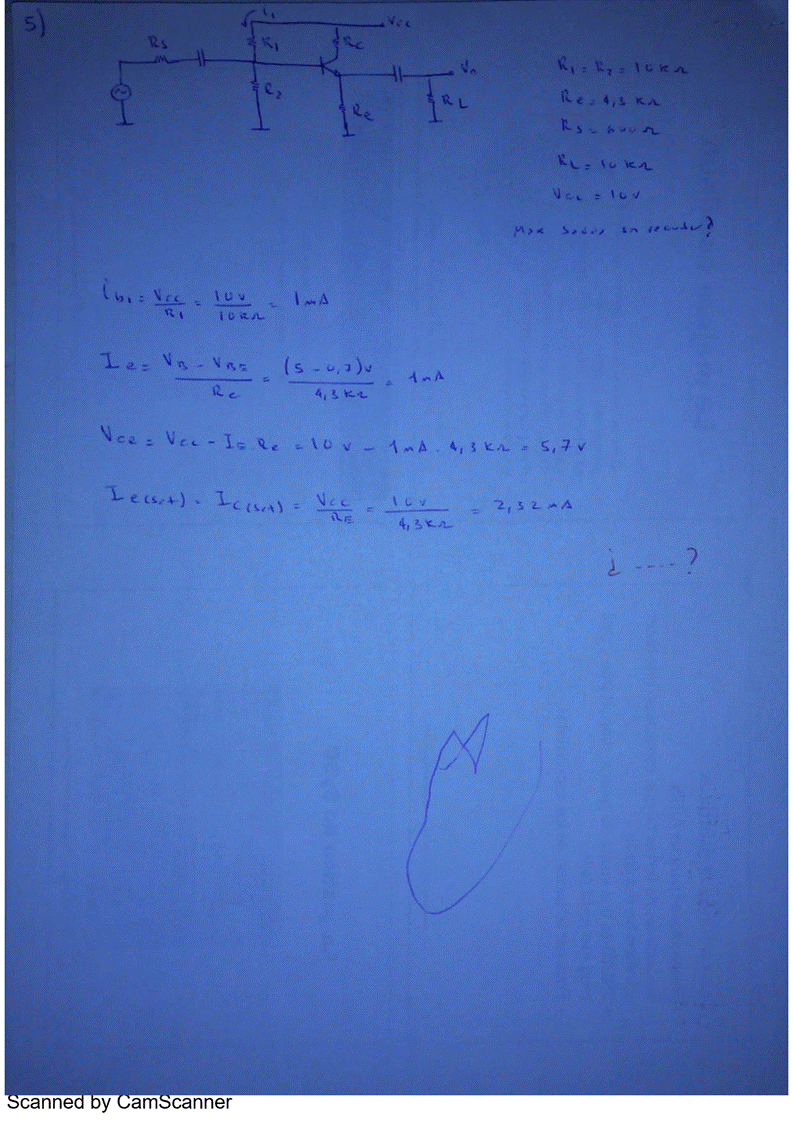 5)
i1
Vcc
Rs
R1
Rc
R2
Re
RL
R1 = R2 = 10 KΩ
Re = 4,3 KΩ
Rs = 600 Ω
RL = 10 KΩ
Vcc = 10 V
ib1 = Vcc / R1 = 10 V / 10 KΩ = 1 mA
Ie = VB - VBE / Re = (5 - 0,7) V / 4,3 KΩ = 1 mA
VCE = Vcc - IE Re = 10 V - 1 mA . 4,3 KΩ = 5,7 V
Ie(sat) = IC(sat) = Vcc / RE = 10 V / 4,3 KΩ = 2,32 mA
¿ ---- ?
Scanned by CamScanner